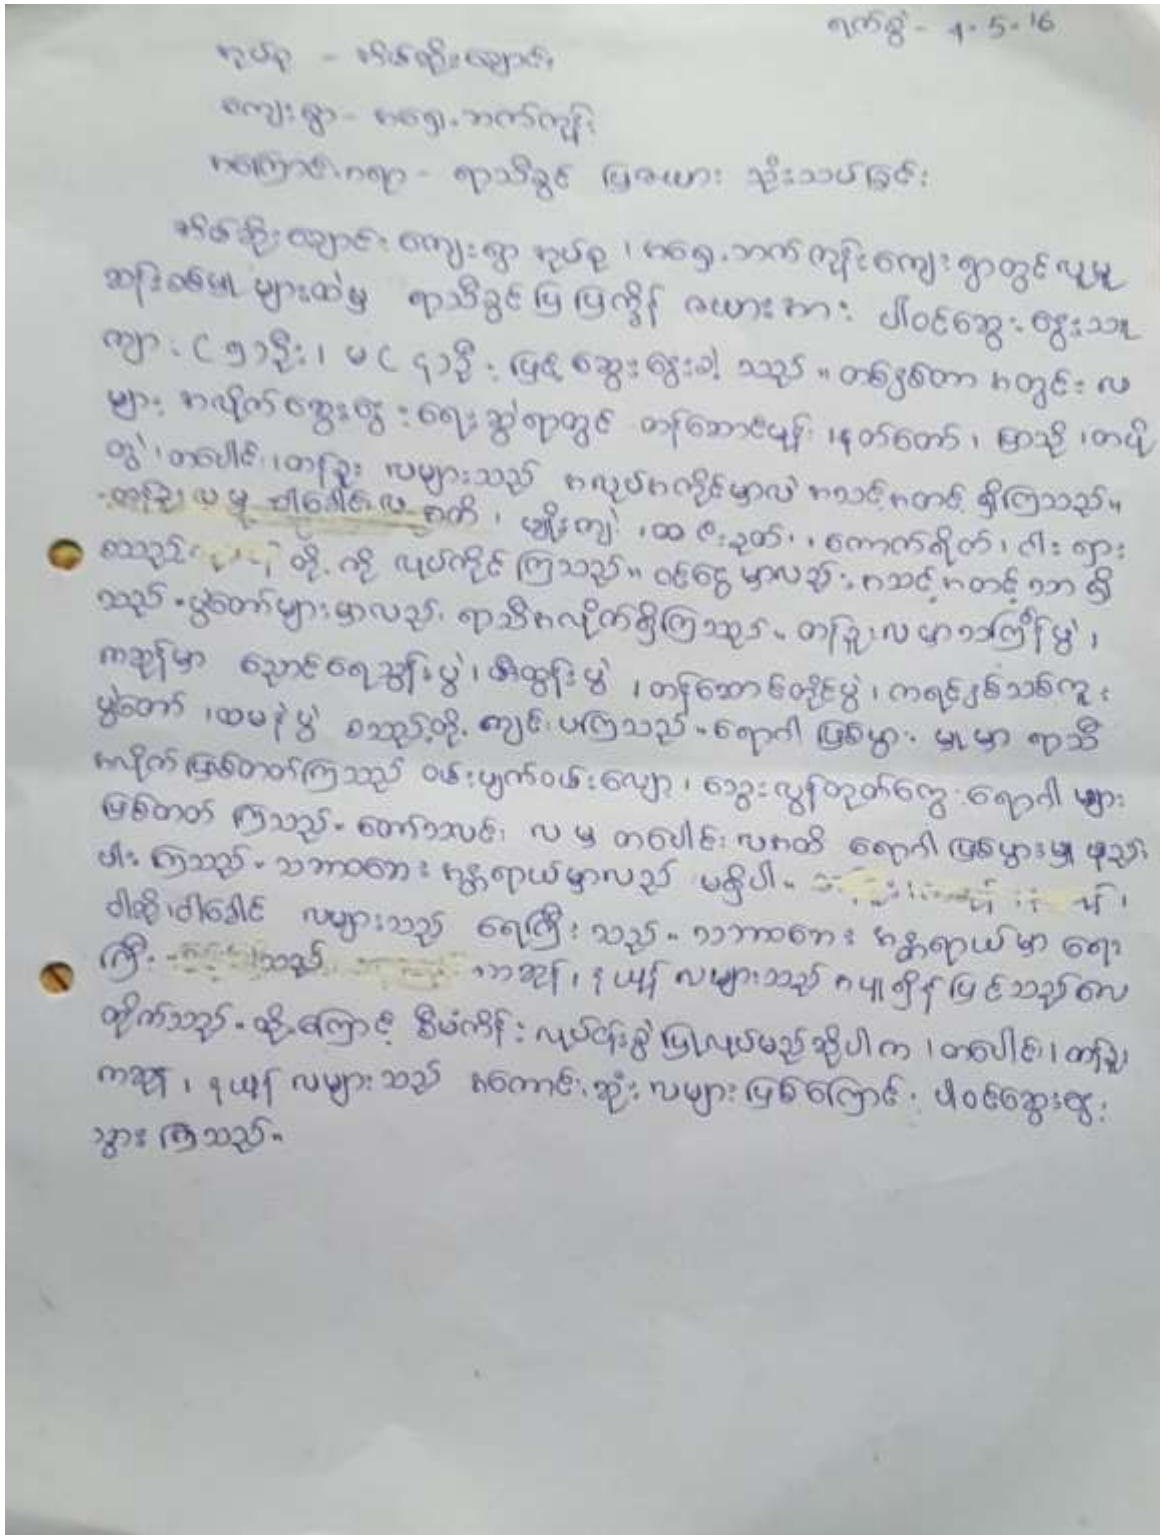 ရက်စွဲ - 4-5-16
အုပ်စု - ကိမ်ဆိုးချောင်း
ကျေးရွာ - အရှေ့ဘက်ကျွန်း
အကြောင်းအရာ - ရာသီခွင် ပြဇယား သုံးသပ်ခြင်း
ကိမ်ဆိုးချောင်း ကျေးရွာ အုပ်စု ၊ အရှေ့ဘက်ကျွန်းကျေးရွာတွင် လူမှု
ဆန်းစစ်မှု များထဲမှ ရာသီခွင်ပြ ပြက္ခဒိန် ဇယားအား ပါဝင်ဆွေးနွေးသူ
ကျား ( ၅ ) ဦး ၊ မ ( ၄ ) ဦး ဖြင့် ဆွေးနွေးခဲ့ သည်။ တစ်နှစ်တာ အတွင်း လ
များ အလိုက် ဆွေးနွေးရေးဆွဲရာတွင် တန်ဆောင်မုန်း ၊ နတ်တော် ၊ ပြာသို ၊ တပို့
တွဲ ၊ တပေါင်း ၊ တန်ခူး လများသည် အလုပ်အကိုင်မှာလဲ အသင့်အတင့် ရှိကြသည်။
တန်ခူးလ မှ ဝါခေါင်လ အထိ ၊ မျိုးကျဲ ၊ ထ ၊ ကောက်စိုက် ၊ ငါး ရှာ
စသည် တို့ ကို လုပ်ကိုင် ကြသည်။ ဝင်ငွေ မှာလည်း အသင့်အတင့် သာ ရှိ
သည်။ ပွဲတော်များမှာလည်း ရာသီအလိုက်ရှိကြသည်။ တန်ခူးလ မှာ သင်္ကြန်ပွဲ ၊
ကဆုန်မှာ ညောင်ရေသွန်းပွဲ ၊ မီးထွန်းပွဲ ၊ တန်ဆောင်တိုင်ပွဲ ၊ ကရင်နှစ်သစ်ကူး
ပွဲတော် ၊ ထမနဲပွဲ စသည့်တို့ ကျင်းပကြသည်။ ရောဂါ ဖြစ်ပွား မှုမှာ ရာသီ
အလိုက်ဖြစ်တတ်ကြသည် ဝမ်းပျက်ဝမ်းလျှော ၊ သွေးလွန်တုတ်ကွေး ရောဂါ များ
ဖြစ်တတ် ကြသည်။ တော်သလင်း လ မှ တပေါင်း လအထိ ရောဂါ ဖြစ်ပွားမှု နည်း
ပါး ကြသည်။ သဘာဝဘေး အန္တရာယ်မှာလည်း မရှိပါ။
ဝါဆို ၊ ဝါခေါင် လများသည် ရေကြီး သည်။ သဘာဝဘေး အန္တရာယ်မှာ ရေ
ကြီး သည် ကဆုန် ၊ နယုန် လများသည် အပူရှိန်ပြင်းသည် လေ
တိုက်သည်။ ထို့ကြောင့် စီမံကိန်း လုပ်ငန်းစဉ် ပြုလုပ်မည်ဆိုပါက ၊ တပေါင်း ၊ တန်ခူး
ကဆုန် ၊ နယုန် လများ သည် အကောင်းဆုံး လများ ဖြစ်ကြောင်း ပါဝင်ဆွေးနွေး
သွား ကြသည်။